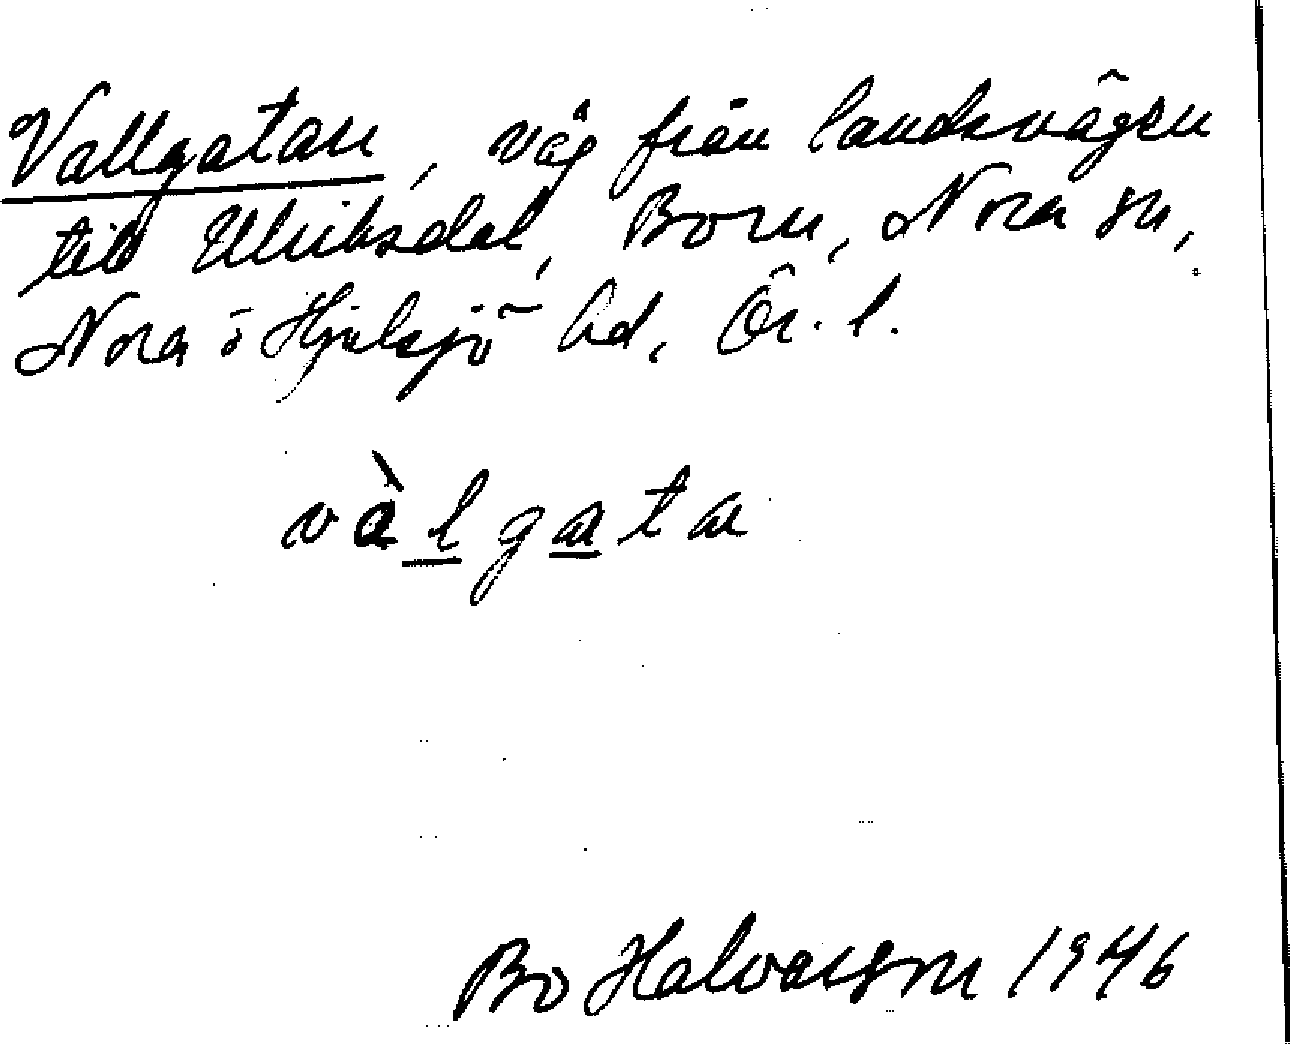 Vallgatan, väg från landsvägen
till Ulriksdal, Born, Nora sn,
Nora o Hjulsjö hd, Ör. l.
vàlgata
Bo Halvarson 1946